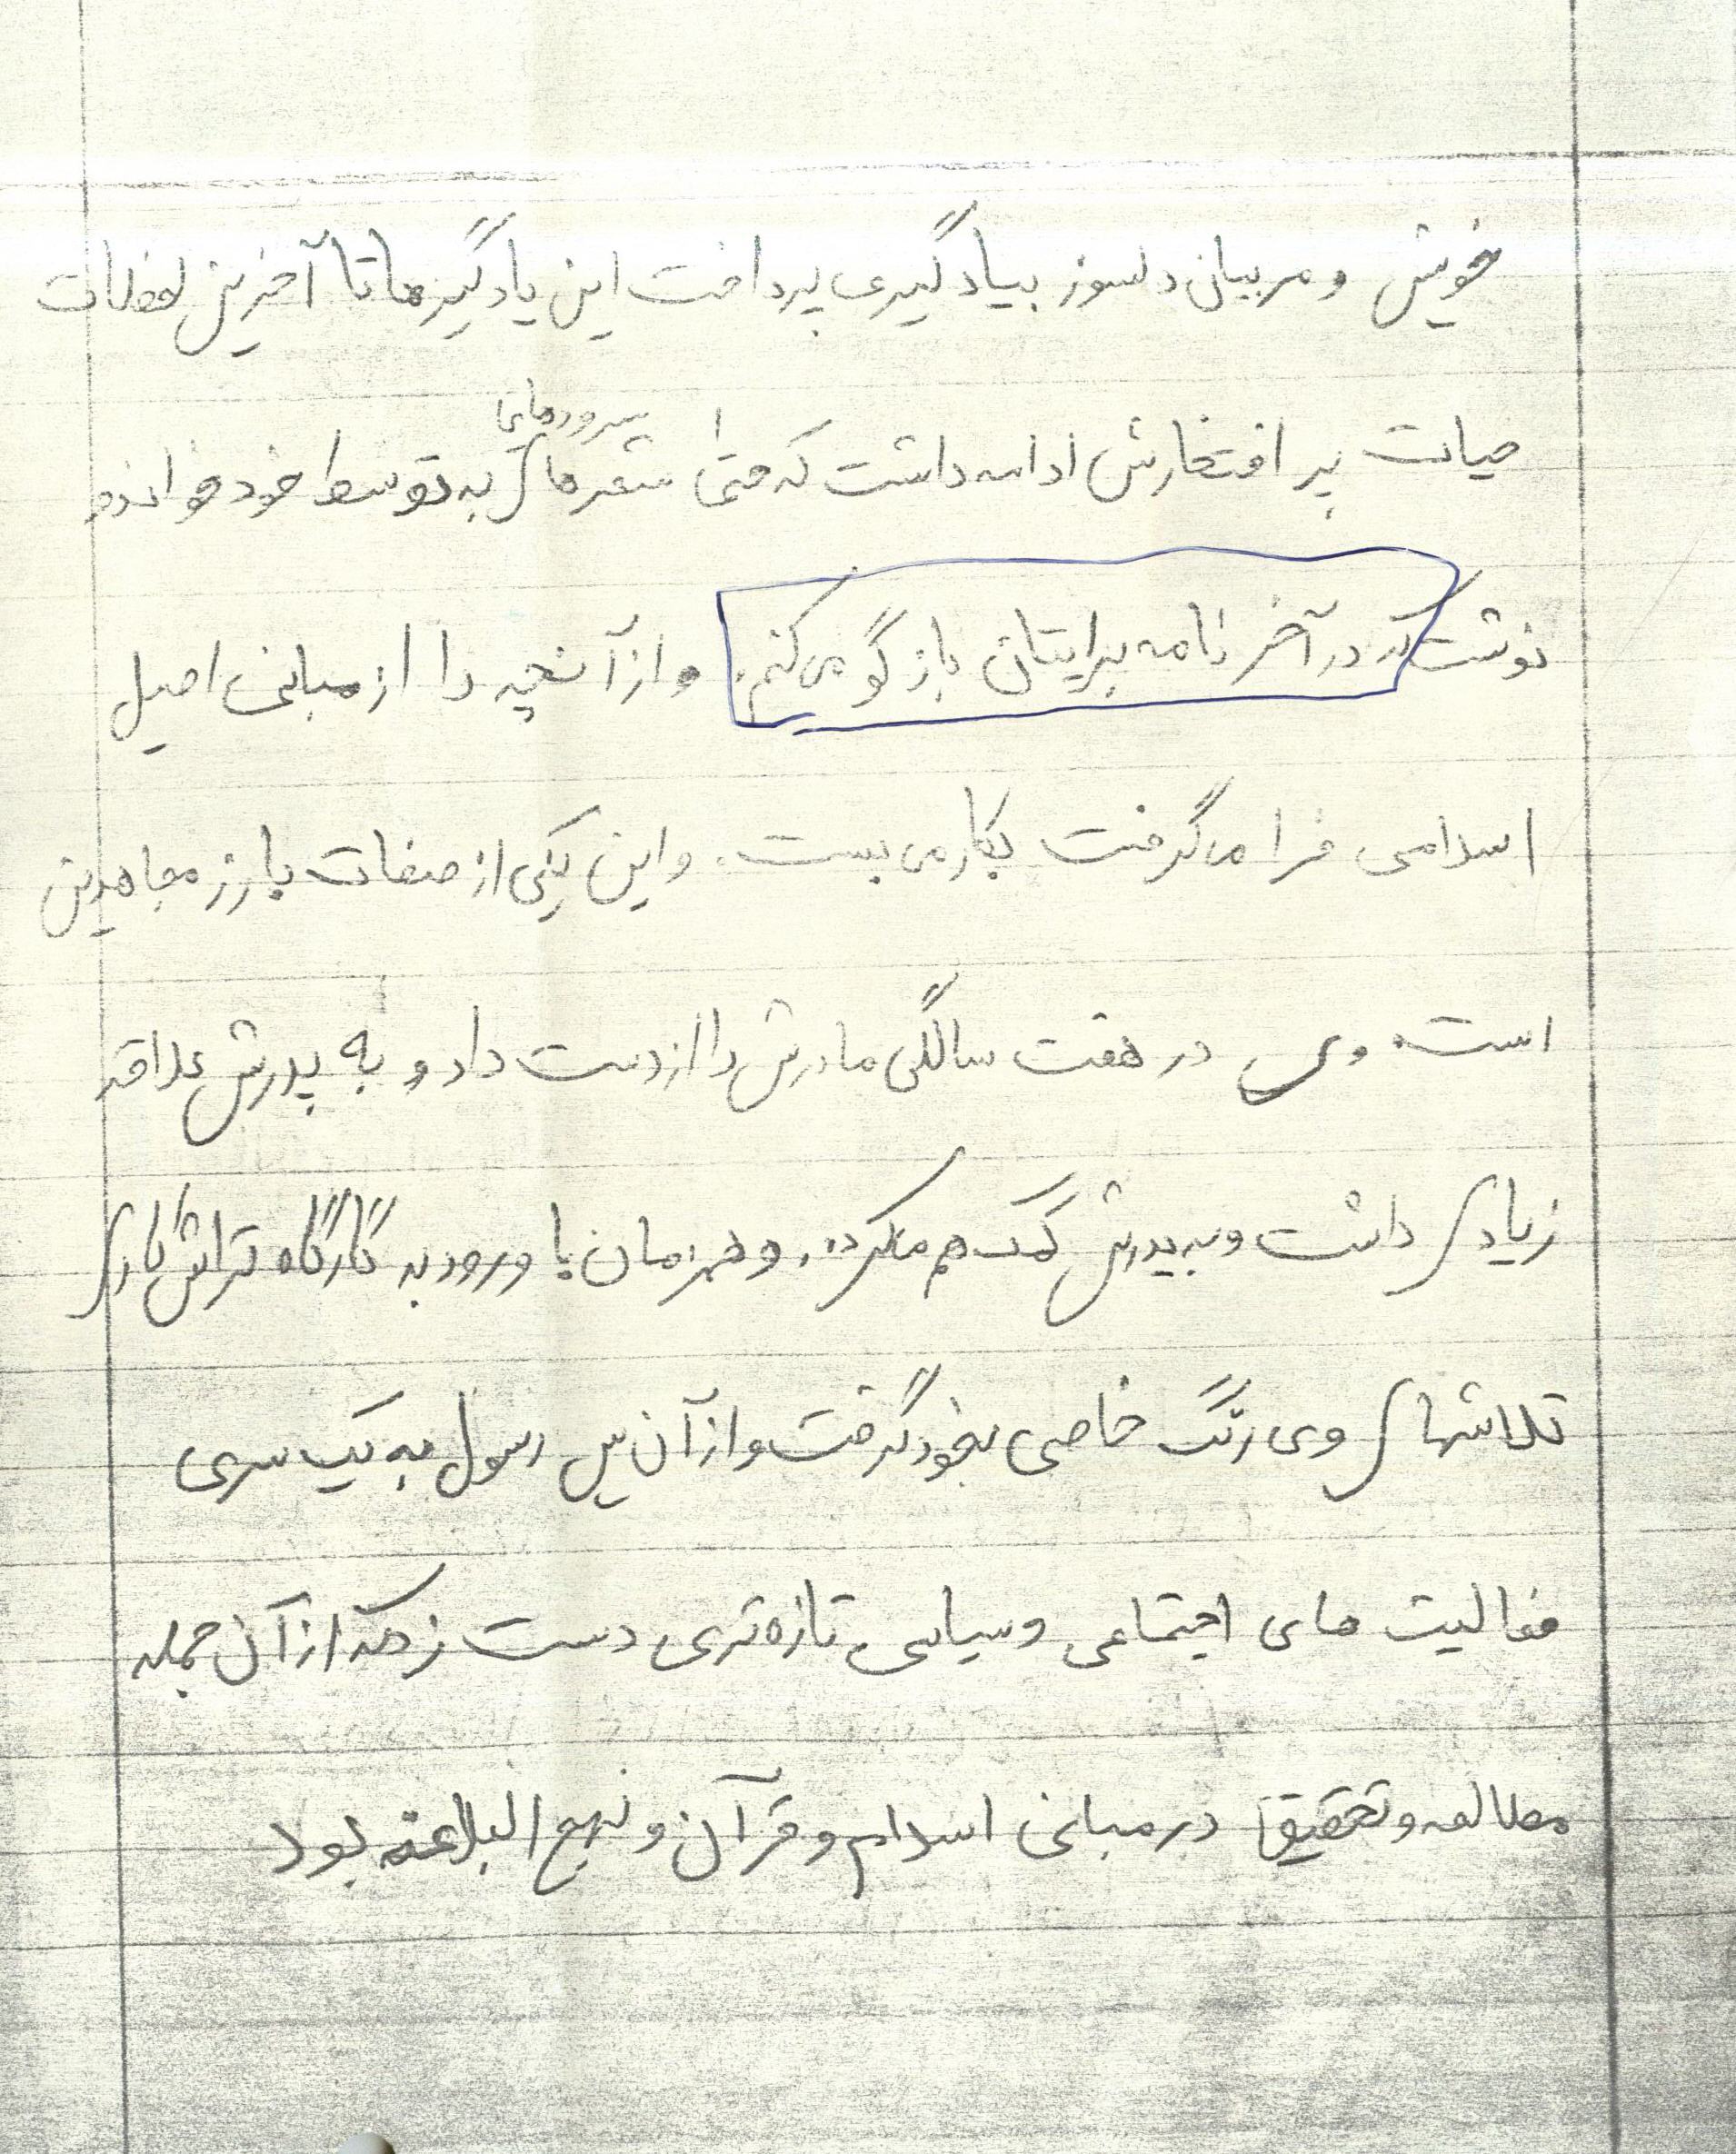 خویش و مربیان دلسوز بیادگیری پرداخت این یادگیرها تا آخرین لحظات
سرودهای
حیات پر افتخارش ادامه داشت که حتی شعرهای به توسط خود خواندو
نوشت که در آخر نامه برایتان بازگو می کنم. و از آنچه را از مبانی اصیل
اسلامی فرا می گرفت بکار می بست. و این یکی از صفات بارز مجاهدین
است. وی در هفت سالگی مادرش را از دست داد و به پدرش علاقه
زیادی داشت و به پدرش کمک هم میکرد. و همزمان با ورود به کارگاه تراشکاری
تلاشهای وی رنگ خاصی بخود گرفت و از آن پس رسول به یک سری
فعالیت های اجتماعی و سیاسی تازه تری دست زد که از آن جمله
مطالعه و تحقیق در مبانی اسلام و قرآن و نهج البلاغه بود